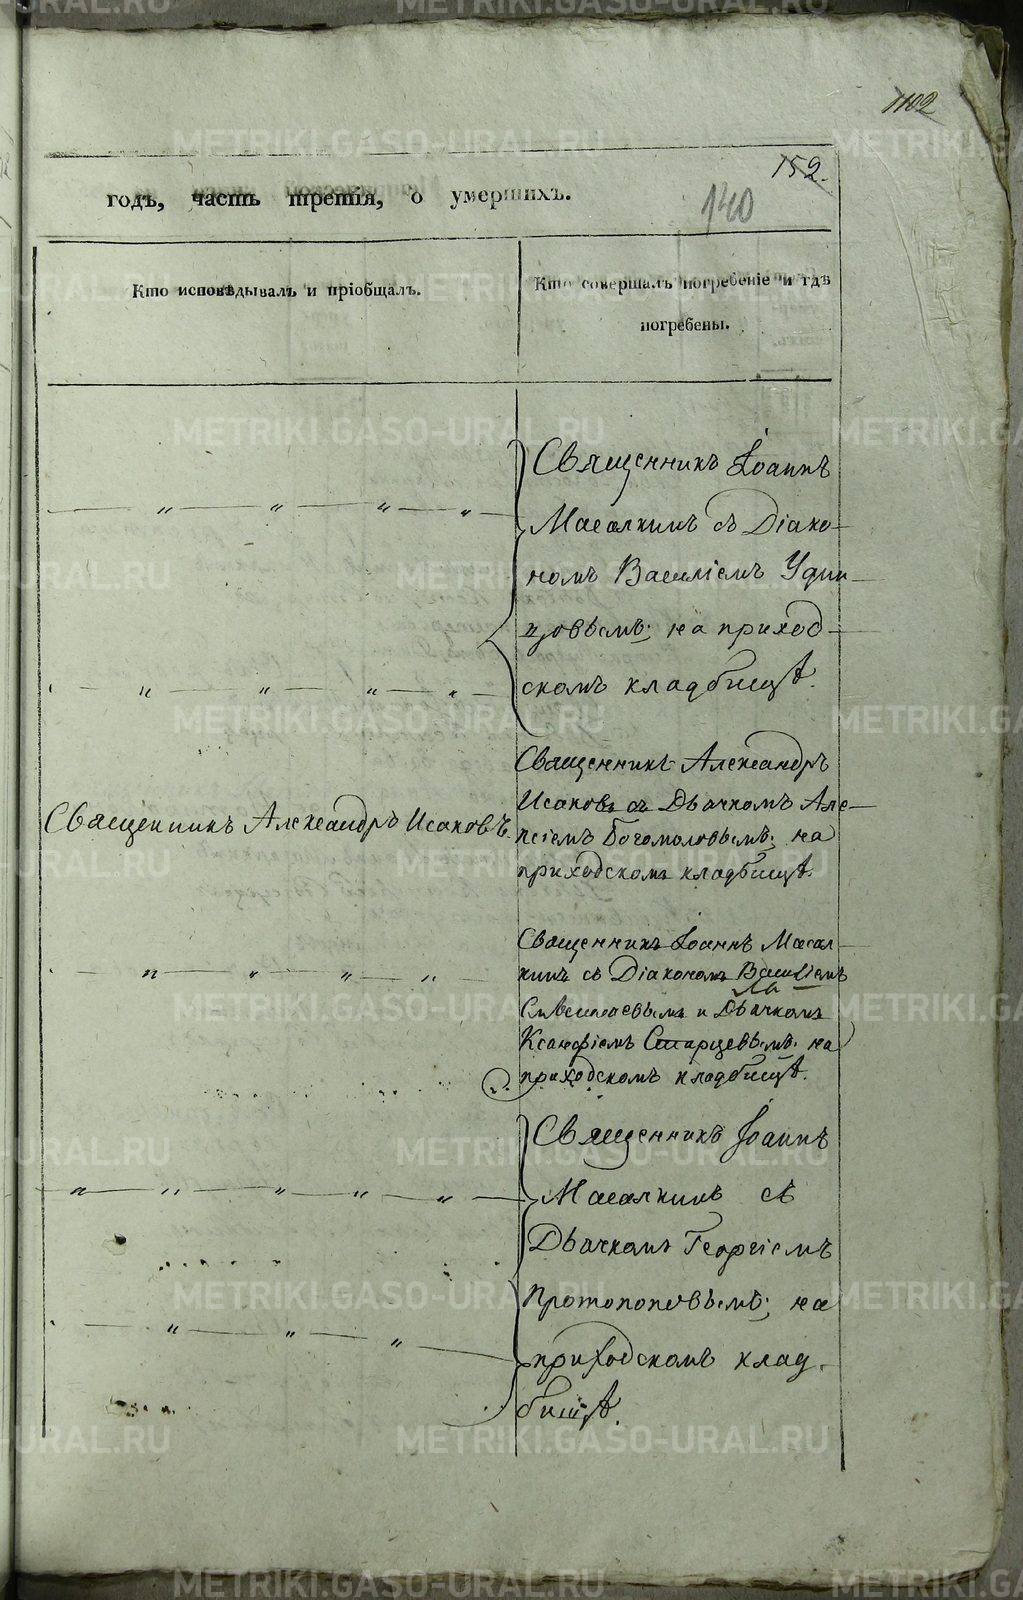 1102
152.
140
годъ, часть третія, о умершихъ.
Кто исповѣдывалъ и пріобщалъ.
Кто совершалъ погребеніе и гдѣ
погребены.
Священникъ Іоаннъ
Масалкинъ съ Діако-
номъ Василіемъ Удин-
цовымъ; на приход-
скомъ кладбищѣ.
Священникъ Александръ Исаковъ.
Священникъ Александръ
Исаковъ съ Дьячкомъ Але-
ксіемъ Богомоловымъ; на
приходскомъ кладбищѣ.
Священникъ Іоаннъ Масал-
кинъ съ Діакономъ Василіемъ
и Дьячкомъ
Ксанфіемъ Старцевымъ; на
приходскомъ кладбищѣ.
Священникъ Іоаннъ
Масалкинъ съ
Дьячкомъ Георгіемъ
Протопоповымъ; на
приходскомъ клад-
бищѣ.
METRIKI.GASO-URAL.RU